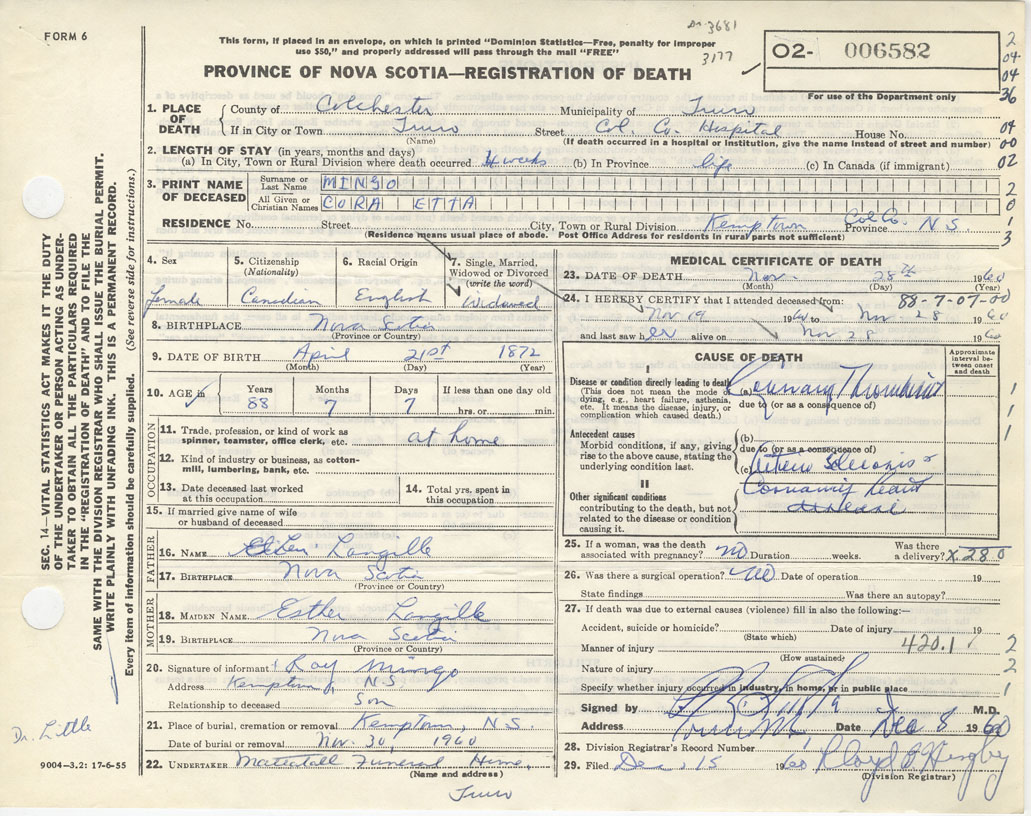 Dr. 3681
FORM 6
This form, if placed in an envelope, on which is printed "Dominion Statistics—Free, penalty for improper
use $50," and properly addressed will pass through the mail "FREE"
3177
O2- 006582
For use of the Department only
PROVINCE OF NOVA SCOTIA—REGISTRATION OF DEATH
1. PLACE OF DEATH County of Colchester Municipality of Truro
If in City or Town Truro Street Col. Co. Hospital House No.
(Name) (If death occurred in a hospital or institution, give the name instead of street and number)
2. LENGTH OF STAY (in years, months and days)
(a) In City, Town or Rural Division where death occurred 4 weeks (b) In Province life (c) In Canada (if immigrant)
3. PRINT NAME OF DECEASED Surname or Last Name MINGO
All Given or Christian Names CORA ETTA
RESIDENCE No. Street City, Town or Rural Division Kemptown Col Co. Province N.S.
(Residence means usual place of abode. Post Office Address for residents in rural parts not sufficient)
4. Sex female
5. Citizenship (Nationality) Canadian
6. Racial Origin English
7. Single, Married, Widowed or Divorced (write the word) Widowed
8. BIRTHPLACE Nova Scotia
(Province or Country)
9. DATE OF BIRTH April 21st 1872
(Month) (Day) (Year)
10. AGE in Years 88 Months 7 Days 7 If less than one day old hrs. or min.
OCCUPATION
11. Trade, profession, or kind of work as spinner, teamster, office clerk, etc. at home
12. Kind of industry or business, as cotton-mill, lumbering, bank, etc.
13. Date deceased last worked at this occupation
14. Total yrs. spent in this occupation
15. If married give name of wife or husband of deceased
FATHER
16. NAME Langille
17. BIRTHPLACE Nova Scotia
(Province or Country)
MOTHER
18. MAIDEN NAME Esther Langille
19. BIRTHPLACE Nova Scotia
(Province or Country)
20. Signature of informant Roy Mingo
Address Kemptown, N.S.
Relationship to deceased Son
21. Place of burial, cremation or removal Kemptown, N.S.
Date of burial or removal Nov. 30, 1960
22. UNDERTAKER Mattatall Funeral Home,
(Name and address)
Truro
MEDICAL CERTIFICATE OF DEATH
23. DATE OF DEATH Nov. 28th 1960
(Month) (Day) (Year)
24. I HEREBY CERTIFY that I attended deceased from: 88-7-07-00
Nov 19 1960 to Nov. 28 1960
and last saw her alive on Nov 28 1960
CAUSE OF DEATH
Approximate interval between onset and death
I
Disease or condition directly leading to death (a) Coronary Thrombosis
(This does not mean the mode of dying, e.g., heart failure, asthenia, etc. It means the disease, injury, or complication which caused death.)
due to (or as a consequence of)
Antecedent causes
Morbid conditions, if any, giving rise to the above cause, stating the underlying condition last.
(b)
due to (or as a consequence of)
(c) Arterio Sclerosis &
II
Other significant conditions
contributing to the death, but not related to the disease or condition causing it.
Coronary heart
disease
25. If a woman, was the death associated with pregnancy? no Duration weeks. Was there a delivery? X 280
26. Was there a surgical operation? no Date of operation 19
State findings Was there an autopsy?
27. If death was due to external causes (violence) fill in also the following:—
Accident, suicide or homicide? Date of injury 19
(State which)
Manner of injury 420.1
(How sustained)
Nature of injury
Specify whether injury occurred in industry, in home, or in public place
Signed by M.D.
Address Truro N.S. Date Dec 8 1960
28. Division Registrar's Record Number
29. Filed Dec. 15 1960
(Division Registrar)
SEC. 14—VITAL STATISTICS ACT MAKES IT THE DUTY
OF THE UNDERTAKER OR PERSON ACTING AS UNDER-
TAKER TO OBTAIN ALL THE PARTICULARS REQUIRED
IN THE "REGISTRATION OF DEATH" AND TO FILE THE
SAME WITH THE DIVISION REGISTRAR WHO SHALL ISSUE THE BURIAL PERMIT.
WRITE PLAINLY WITH UNFADING INK. THIS IS A PERMANENT RECORD.
Every item of information should be carefully supplied. (See reverse side for instructions.)
Dr. Little
9004—3.2: 17-6-55
2
04
04
36
04
00
02
2
0
1
3
1
1
1
2
2
1